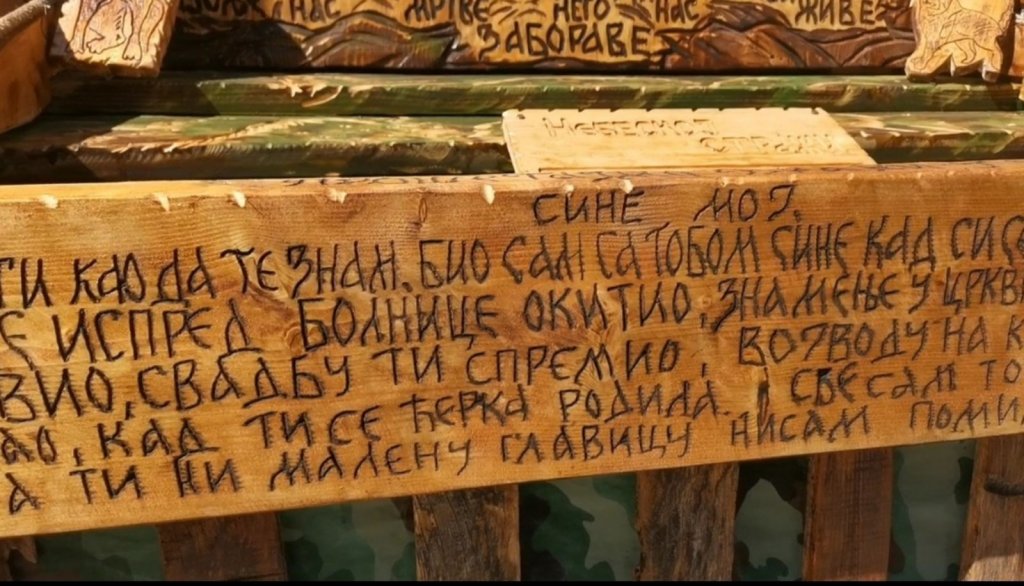 НАС МРТВЕ НЕГО НАС ЖИВЕ
ЗАБОРАВЕ
НЕБЕСКОЈ
СТРАЖИ
СИНЕ МОЈ.
ТИ КАО ДА ТЕ ЗНАМ. БИО САМ СА ТОБОМ СИНЕ КАД СИ СЕ
Е ИСПРЕД БОЛНИЦЕ ОКИТИО, ЗНАМЕЊЕ У ЦРКВИ
ВИО, СВАДБУ ТИ СПРЕМИО, ВОЈВОДУ НА К
АО, КАД ТИ СЕ ЋЕРКА РОДИЛА. СВЕ САМ ТО
А ТИ НИ МАЛЕНУ ГЛАВИЦУ НИСАМ ПОМИ